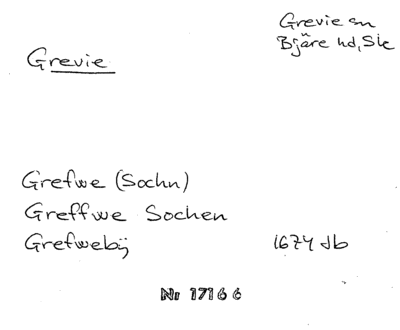 Grevie sn
Bjäre hd, Sk
Grevie
Grefwe (Sochn)
Greffwe Sochen
Grefwebÿ 1674 Jb
Nr 17166